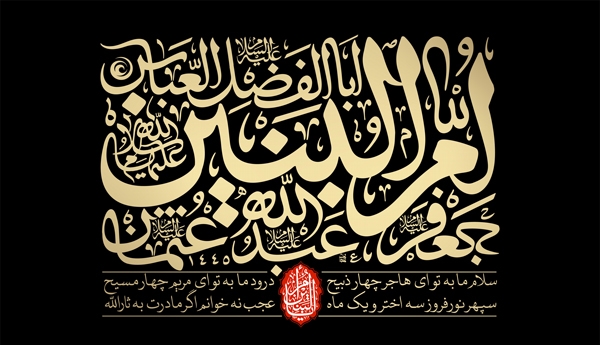 ابا الفضل العباس علیه السلام
ام البنین سلام الله علیها
جعفر علیه السلام عبدالله علیه السلام عثمان علیه السلام
سلام ما به تو ای هاجر چهار ذبیح درود ما به تو ای مریم چهار مسیح
سپهر نور فروز سه اختر و یک ماه عجب نه خوانم اگر مادرت به ثارالله